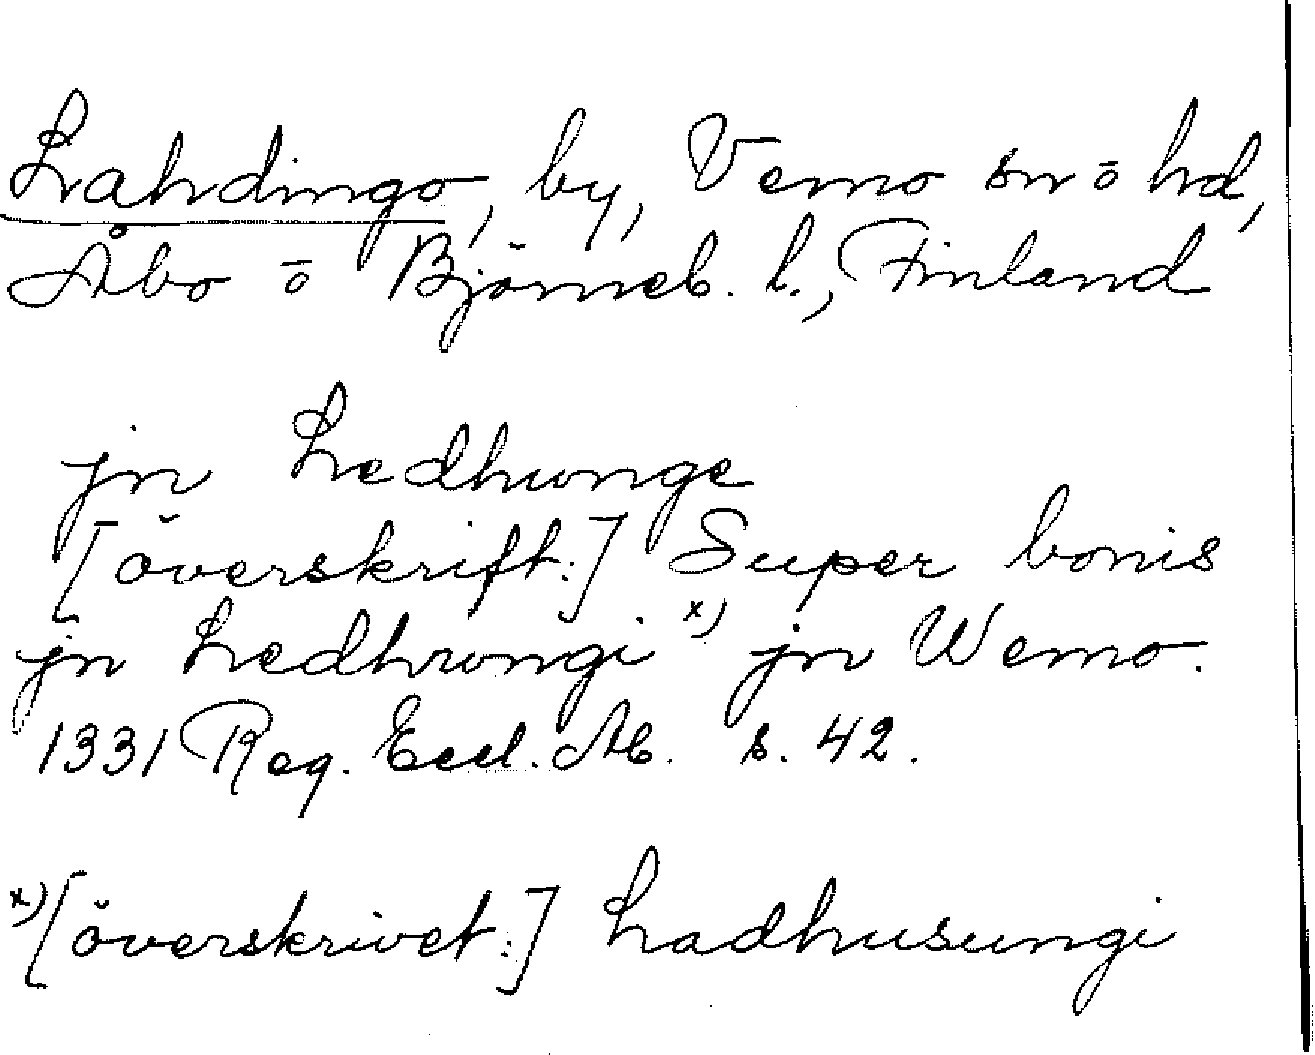 Lahdingo, by, Vemo sn ō hd,
Åbo ō Björneb. l., Finland
jn Ledhunge
[överskrift:] Super bonis
jn Ledhrungi x) jn Wemo.
1331 Reg. Eccl. Ab. s. 42.
x) [överskrivet:] Ladhusungi